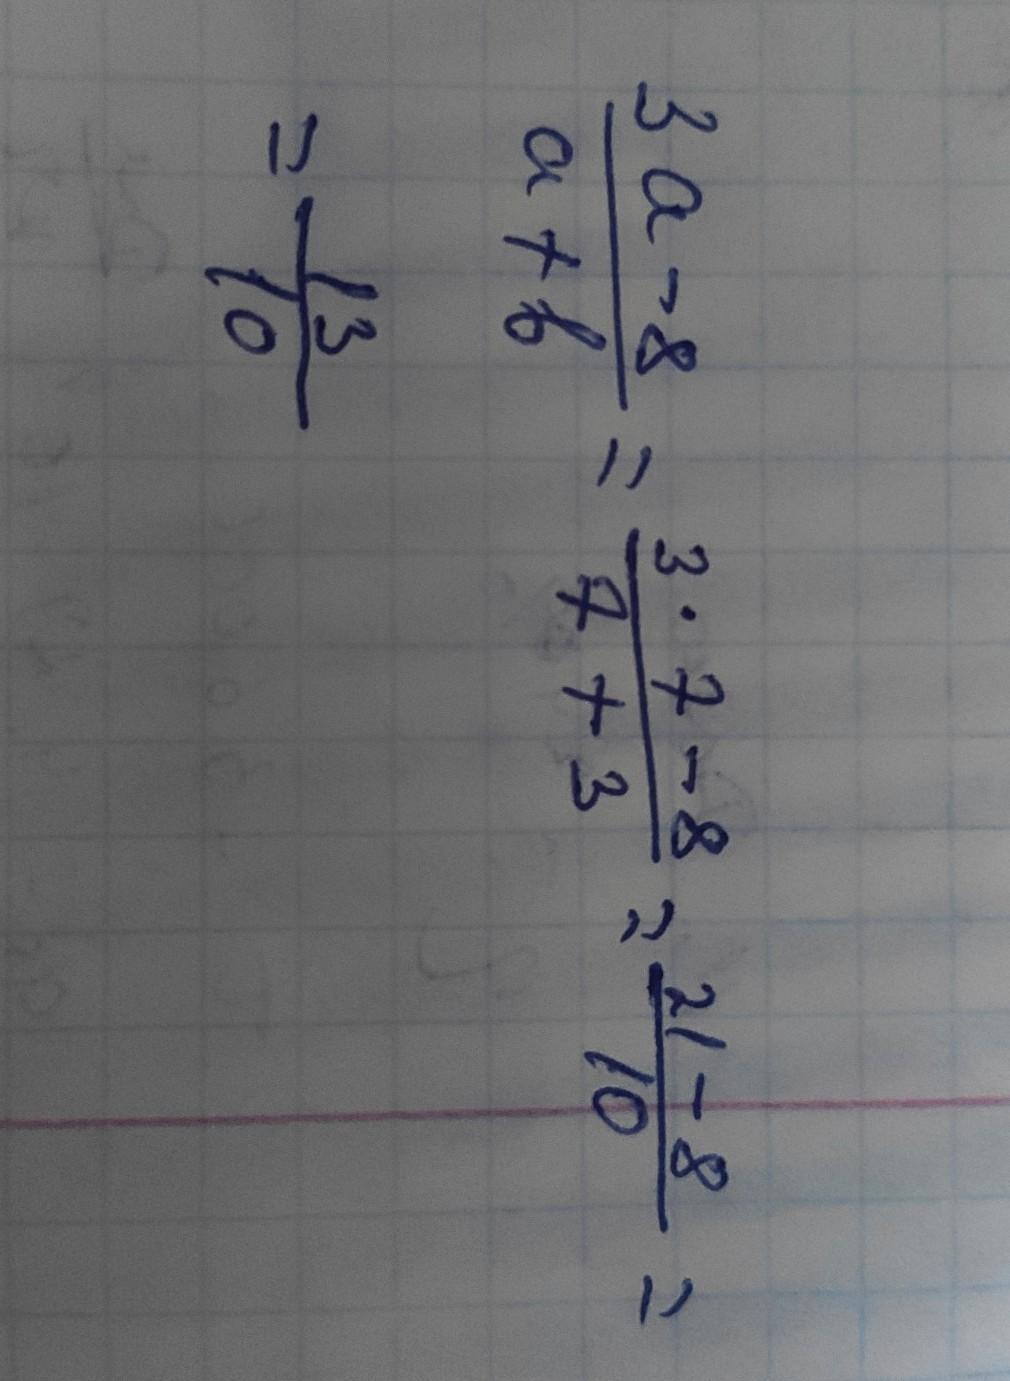 3a-8/a+b = 3·7-8/7+3 = 21-8/10 =
= 13/10